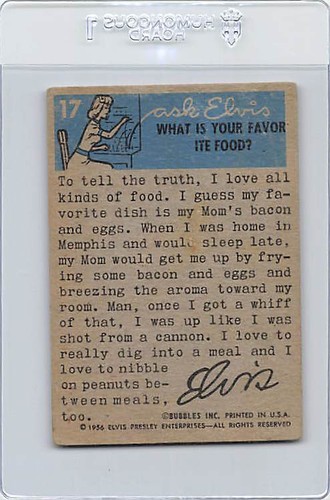 17
ask Elvis
WHAT IS YOUR FAVOR
ITE FOOD?
To tell the truth, I love all
kinds of food. I guess my fa-
vorite dish is my Mom's bacon
and eggs. When I was home in
Memphis and would sleep late,
my Mom would get me up by fry-
ing some bacon and eggs and
breezing the aroma toward my
room. Man, once I got a whiff
of that, I was up like I was
shot from a cannon. I love to
really dig into a meal and I
love to nibble
on peanuts be-
tween meals,
too.
Elvis
©BUBBLES INC. PRINTED IN U.S.A.
© 1956 ELVIS PRESLEY ENTERPRISES—ALL RIGHTS RESERVED